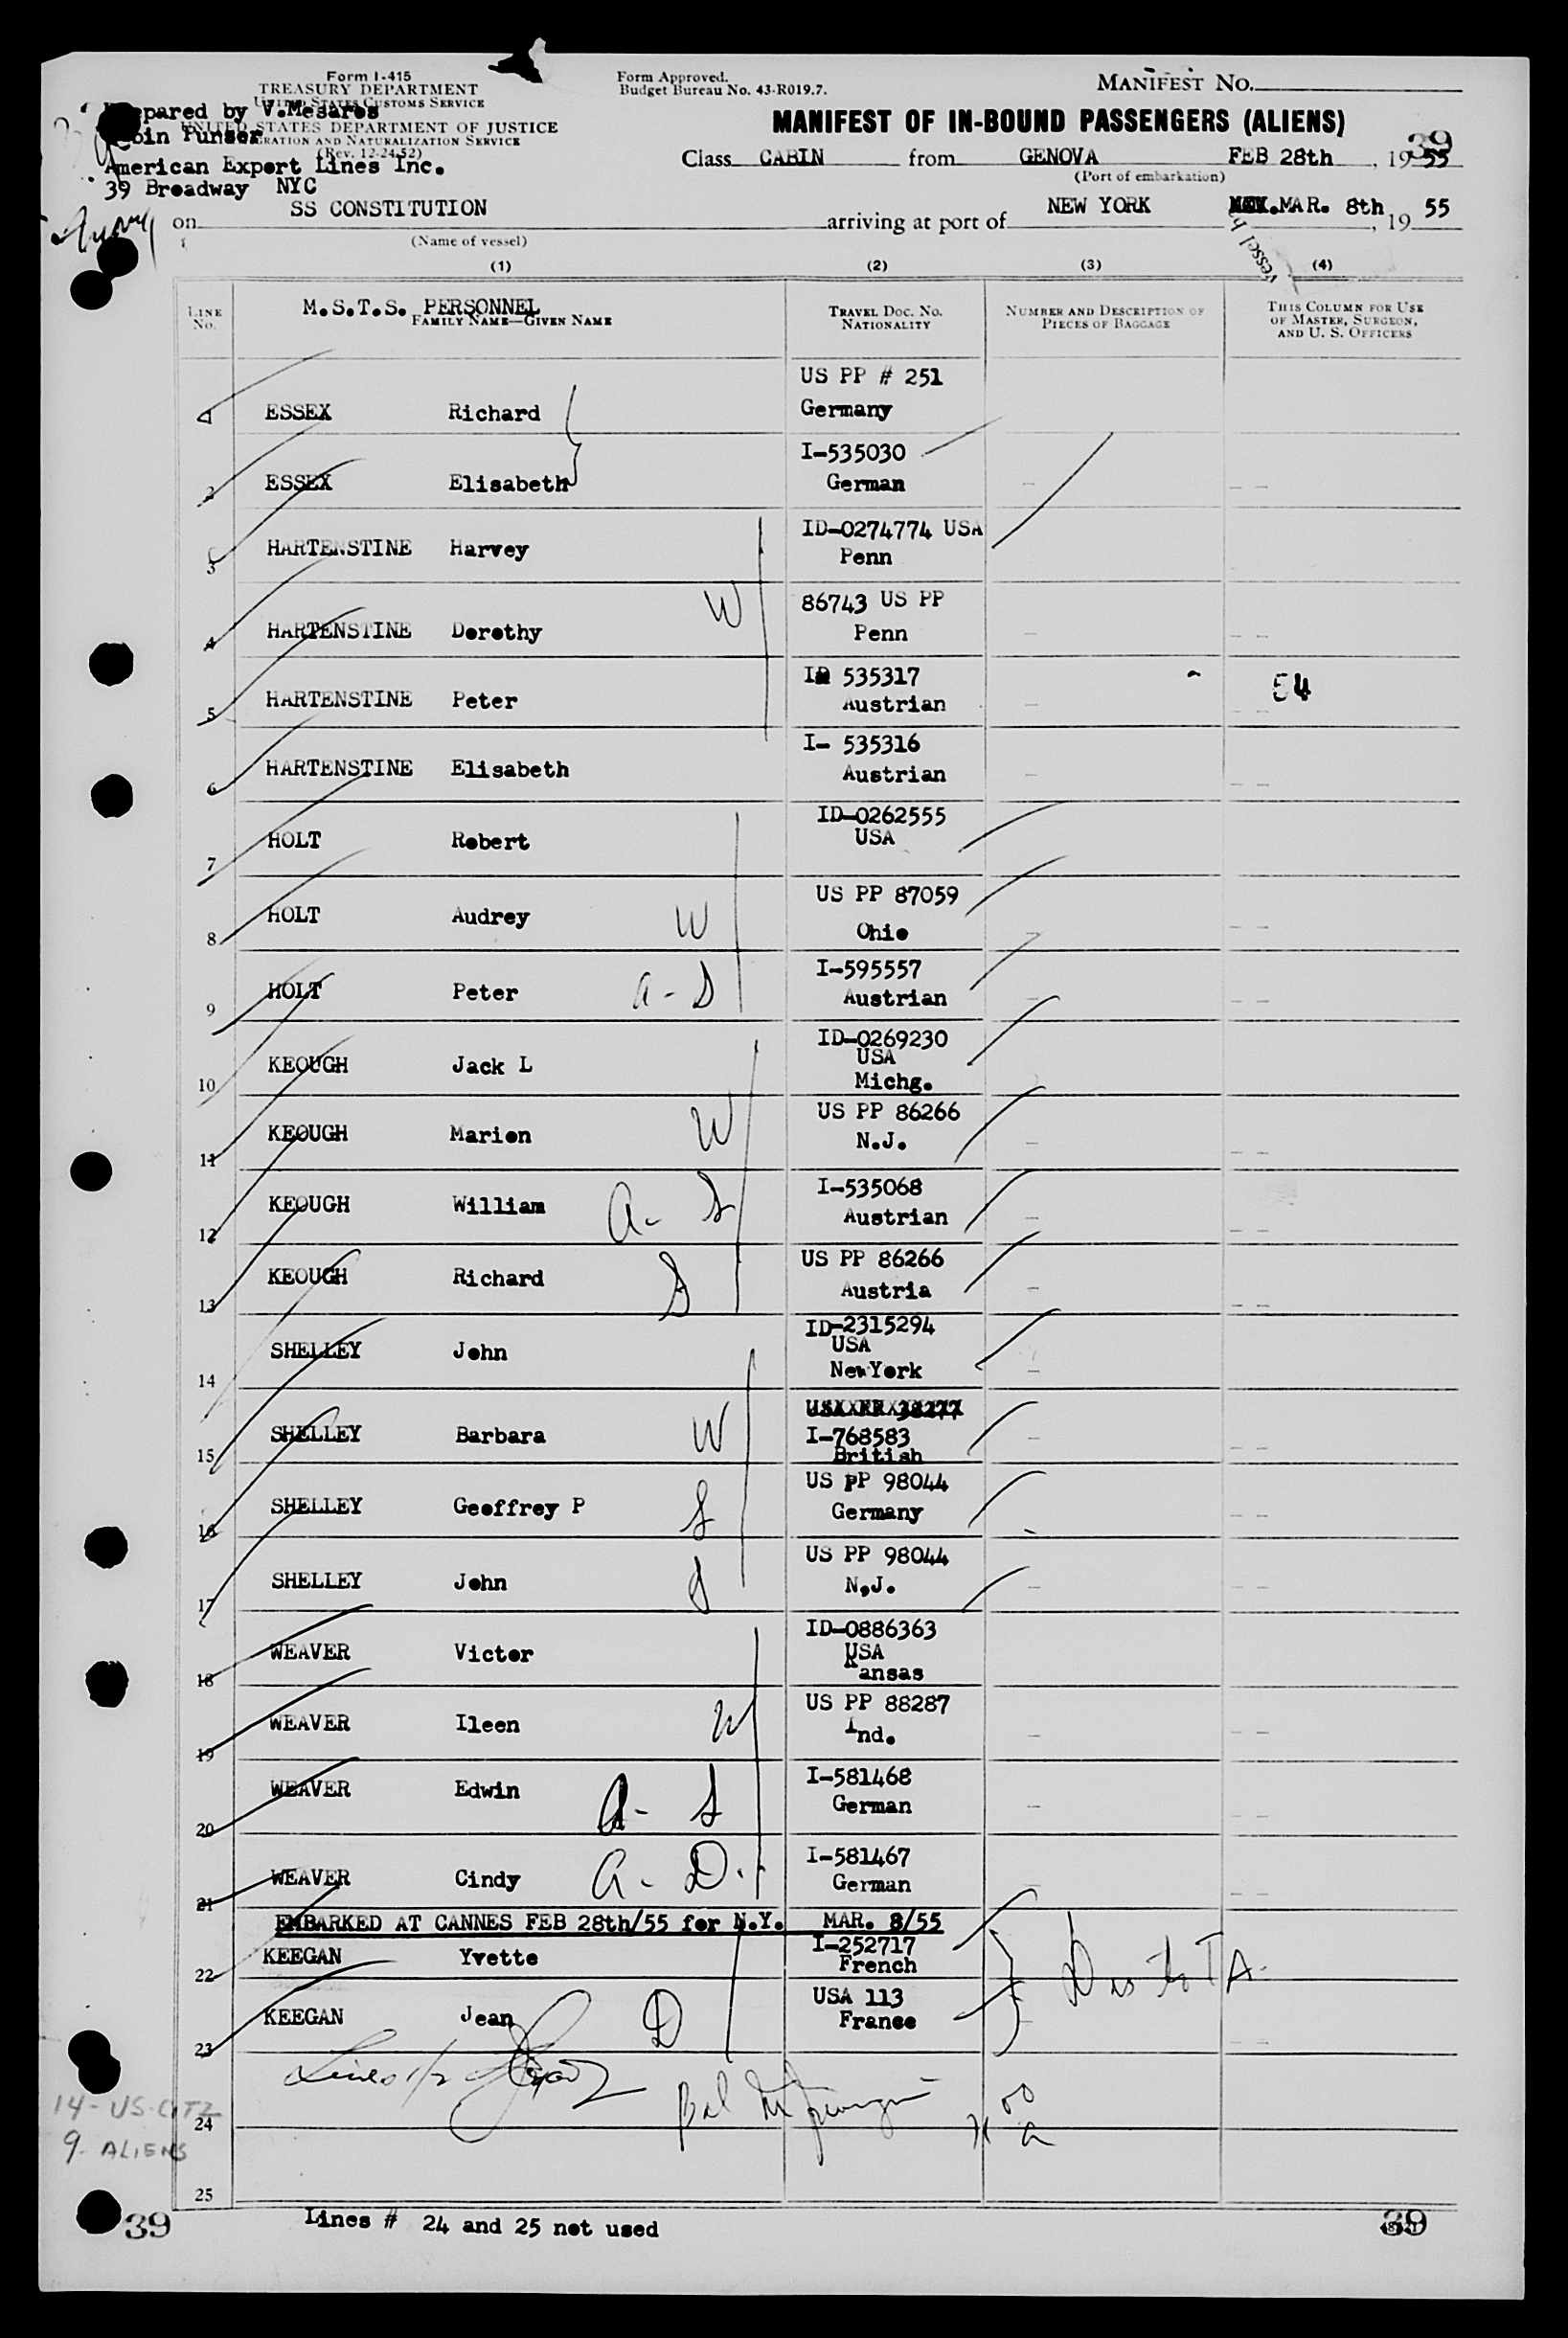 Form I-415
TREASURY DEPARTMENT
UNITED STATES CUSTOMS SERVICE
UNITED STATES DEPARTMENT OF JUSTICE
IMMIGRATION AND NATURALIZATION SERVICE
(Rev. 12-24-52)
Prepared by V.Mesaros
Cabin Purser
American Export Lines Inc.
39 Broadway NYC
Form Approved.
Budget Bureau No. 43-R019.7.
MANIFEST NO.
MANIFEST OF IN-BOUND PASSENGERS (ALIENS)
39
Class CABIN from GENOVA FEB 28th, 1955
(Port of embarkation)
on SS CONSTITUTION arriving at port of NEW YORK MAR. 8th, 19 55
(Name of vessel)
(1) (2) (3) (4)
LINE No. M.S.T.S. PERSONNEL
FAMILY NAME—GIVEN NAME
TRAVEL DOC. NO. NATIONALITY
NUMBER AND DESCRIPTION OF PIECES OF BAGGAGE
THIS COLUMN FOR USE OF MASTER, SURGEON, AND U. S. OFFICERS
1 ESSEX Richard US PP # 251 Germany
2 ESSEX Elisabeth I-535030 German
3 HARTENSTINE Harvey ID-0274774 USA Penn
4 HARTENSTINE Dorothy W 86743 US PP Penn
5 HARTENSTINE Peter I 535317 Austrian 54
6 HARTENSTINE Elisabeth I- 535316 Austrian
7 HOLT Robert ID-0262555 USA
8 HOLT Audrey W US PP 87059 Ohio
9 HOLT Peter a - S I-595557 Austrian
10 KEOUGH Jack L ID-0269230 USA Michg.
11 KEOUGH Marion W US PP 86266 N.J.
12 KEOUGH William a - S I-535068 Austrian
13 KEOUGH Richard S US PP 86266 Austria
14 SHELLEY John ID-2315294 USA NewYork
15 SHELLEY Barbara W I-768583 British
16 SHELLEY Geoffrey P S US PP 98044 Germany
17 SHELLEY John S US PP 98044 N,J.
18 WEAVER Victor ID-0886363 USA Kansas
19 WEAVER Ileen W US PP 88287 Ind.
20 WEAVER Edwin a - S I-581468 German
21 WEAVER Cindy a - D. I-581467 German
EMBARKED AT CANNES FEB 28th/55 for N.Y. MAR. 8/55
22 KEEGAN Yvette I-252717 French
23 KEEGAN Jean D USA 113 France
24
25
14 - US. CITZ
9 - ALIENS
39 Lines # 24 and 25 not used 39